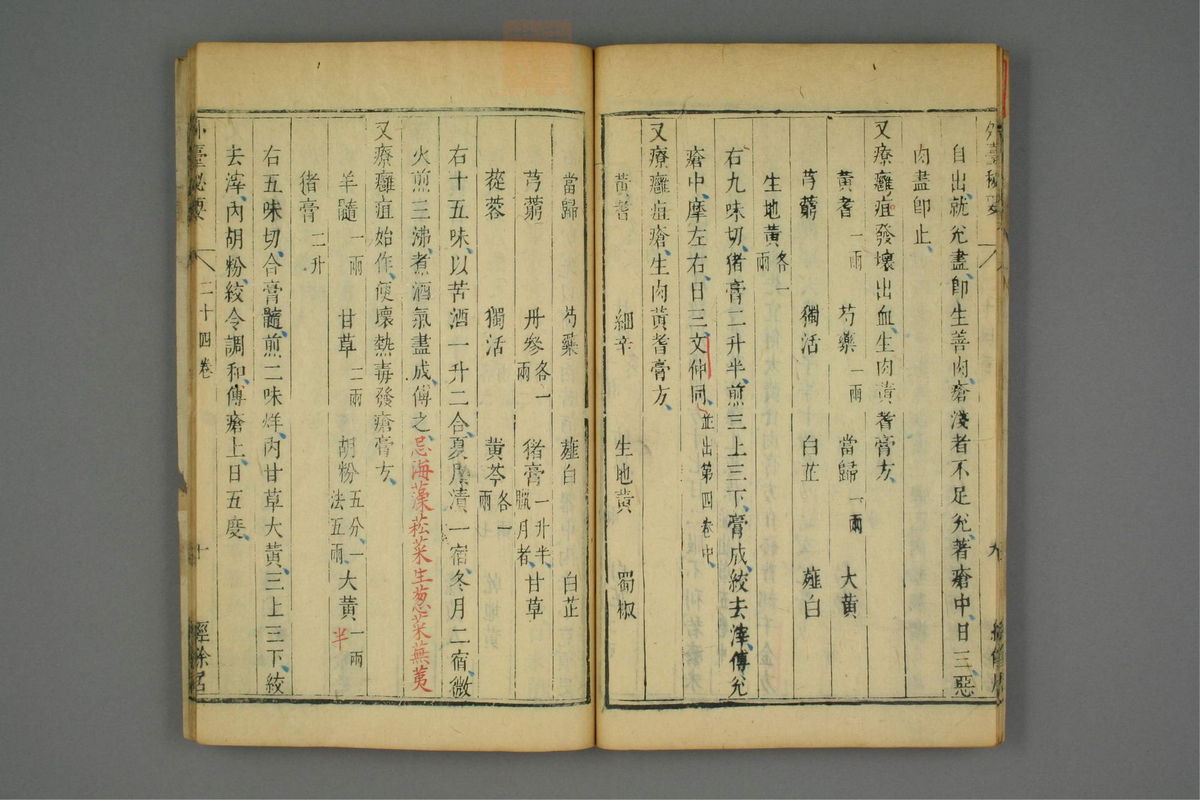 外臺秘要
九
自出、就兊盡、即生善肉、瘡淺者不足兊、著瘡中、日三、惡
肉盡即止、
又療癰疽發壞出血、生肉黃耆膏方、
黃耆一兩 芍藥一兩 當歸一兩 大黃
芎藭 獨活 白芷 薤白
生地黃各一兩
右九味切、猪膏二升半、煎三上三下、膏成絞去滓、傅兊
瘡中、摩左右、日三、文仲同、並出第四卷中、
又療癰疽瘡、生肉黃耆膏方、
黃耆 細辛 生地黃 蜀椒
當歸 芍藥 薤白 白芷
芎藭 丹參各一兩 猪膏一升半、臘月者、 甘草
蓯蓉 獨活 黃芩各一兩
右十五味、以苦酒一升二合、夏月漬一宿、冬月二宿、微
火煎三沸、煮酒氣盡成、傅之、忌海藻菘菜生葱菜蕪荑
又療癰疽始作、便壞熱毒發瘡膏方、
羊髓一兩 甘草二兩 胡粉五分、一法五兩、 大黃一兩半
猪膏二升
右五味切、合膏髓、煎二味烊、內甘草大黃、三上三下、絞
去滓、內胡粉、絞令調和、傅瘡上、日五度、
外臺秘要
二十四卷
十
經餘居